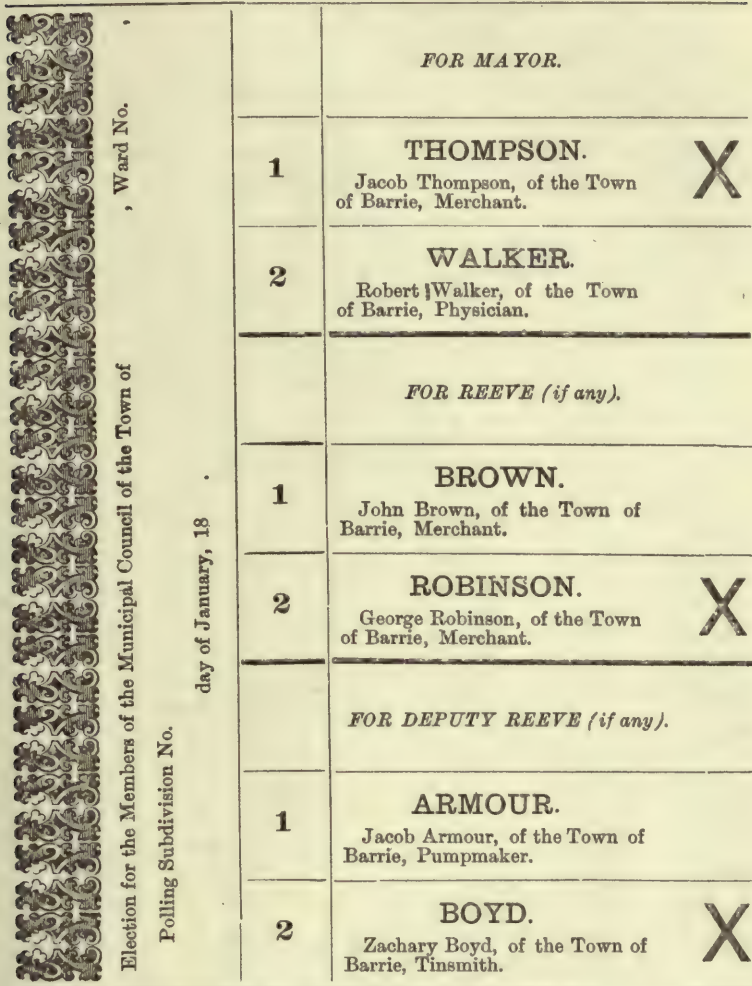 Election for the Members of the Municipal Council of the Town of , Ward No. .
Polling Subdivision No.
day of January, 18 .
FOR MAYOR.
1
THOMPSON.
Jacob Thompson, of the Town
of Barrie, Merchant.
X
2
WALKER.
Robert Walker, of the Town
of Barrie, Physician.
FOR REEVE (if any).
1
BROWN.
John Brown, of the Town of
Barrie, Merchant.
2
ROBINSON.
George Robinson, of the Town
of Barrie, Merchant.
X
FOR DEPUTY REEVE (if any).
1
ARMOUR.
Jacob Armour, of the Town of
Barrie, Pumpmaker.
2
BOYD.
Zachary Boyd, of the Town of
Barrie, Tinsmith.
X